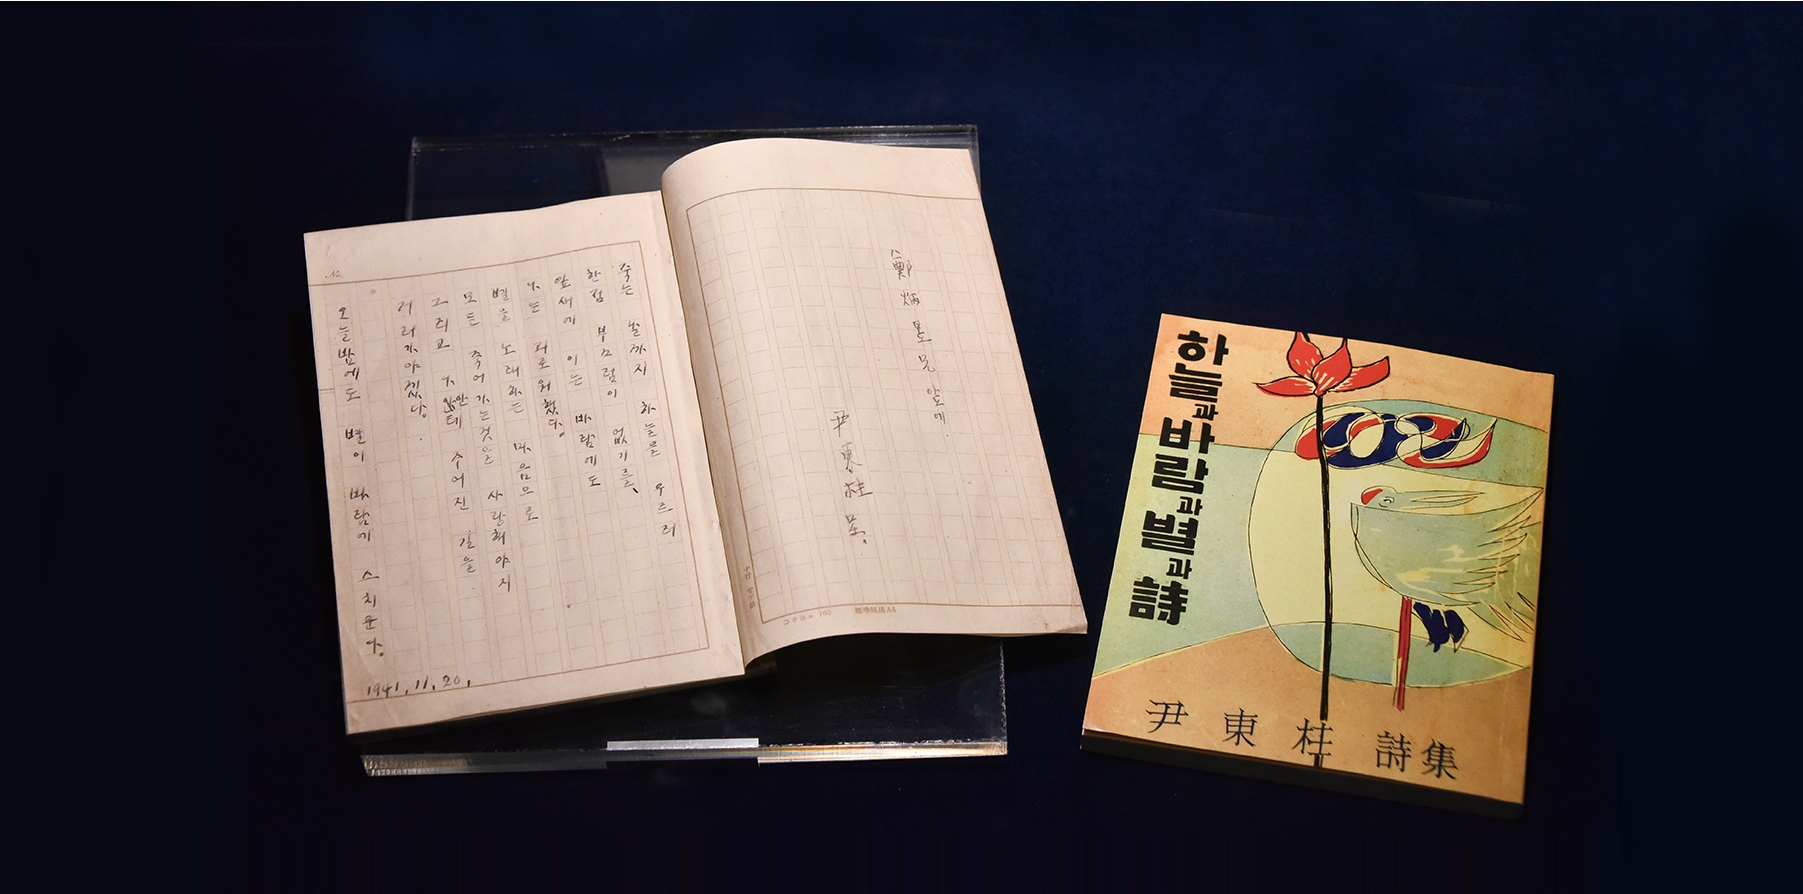 鄭炳昱兄 앞에.
尹東柱 呈.
No.
죽는 날까지 하늘을 우르러
한점 부끄럼이 없기를、
잎새에 이는 바람에도
나는 괴로워했다。
별을 노래하는 마음으로
모든 죽어가는것을 사랑해야지
그리고 나안테 주어진 길을
거러가야겠다。
오늘밤에도 별이 바람에 스치운다。
1941.11.20.
コクヨ 165
標準規格A4
하늘과
바람과
별과
詩
尹東柱 詩集